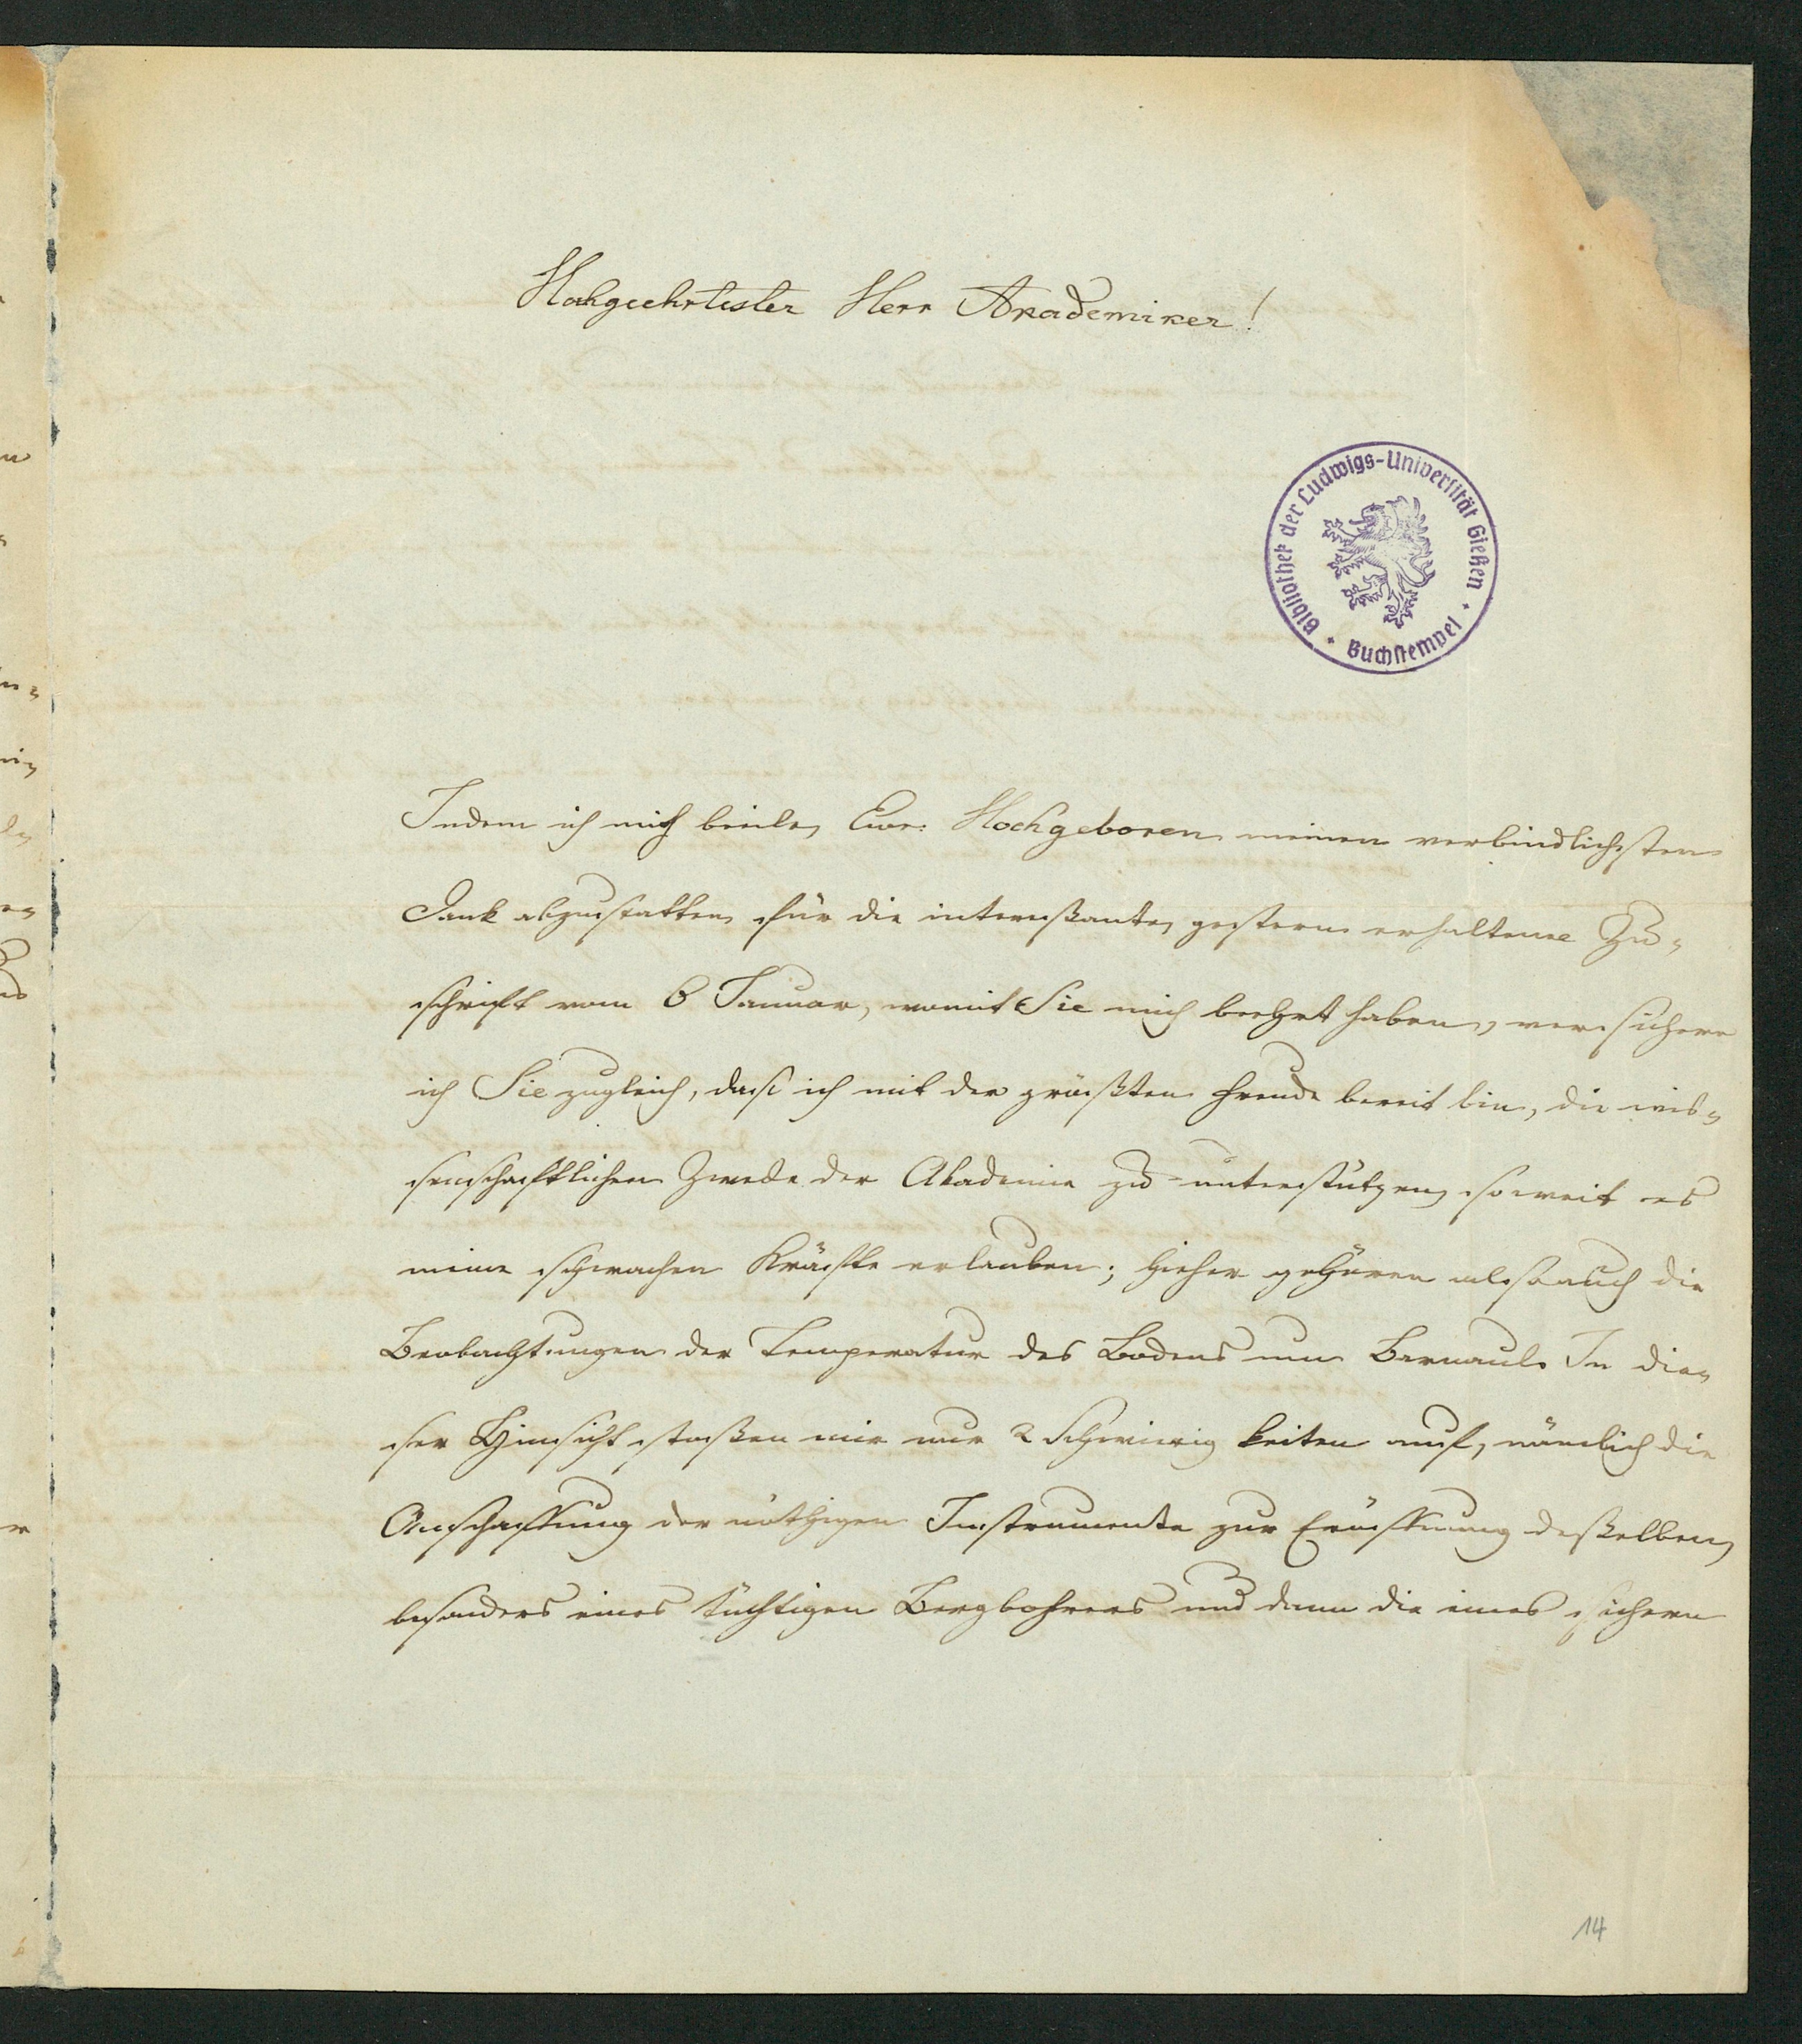 Hochgeehrtester Herr Akademiker!
Bibliothek der Ludwigs-Universität Gießen
Buchstempel
Indem ich mich beeile, Ewr: Hochgeboren meinen verbindlichsten
Dank abzustatten für die interessante, gestern erhaltene Zu-
schrift vom 6 Januar, womit Sie mich beehrt haben, versichere
ich Sie zugleich, dass ich mit der größten Freude bereit bin, die wis-
senschaftlichen Zwecke der Akademie zu unterstützen, soweit es
meine schwachen Kräfte erlauben; hieher gehören also auch die
Beobachtungen der Temperatur des Bodens um Barnaul. In die-
ser Hinsicht stoßen mir nur 2 Schwierigkeiten auf, nämlich die
Anschaffung der nöthigen Instrumente zur Eröffnung desselben,
besonders eines tüchtigen Bergbohrers und dann die eines sichern
14